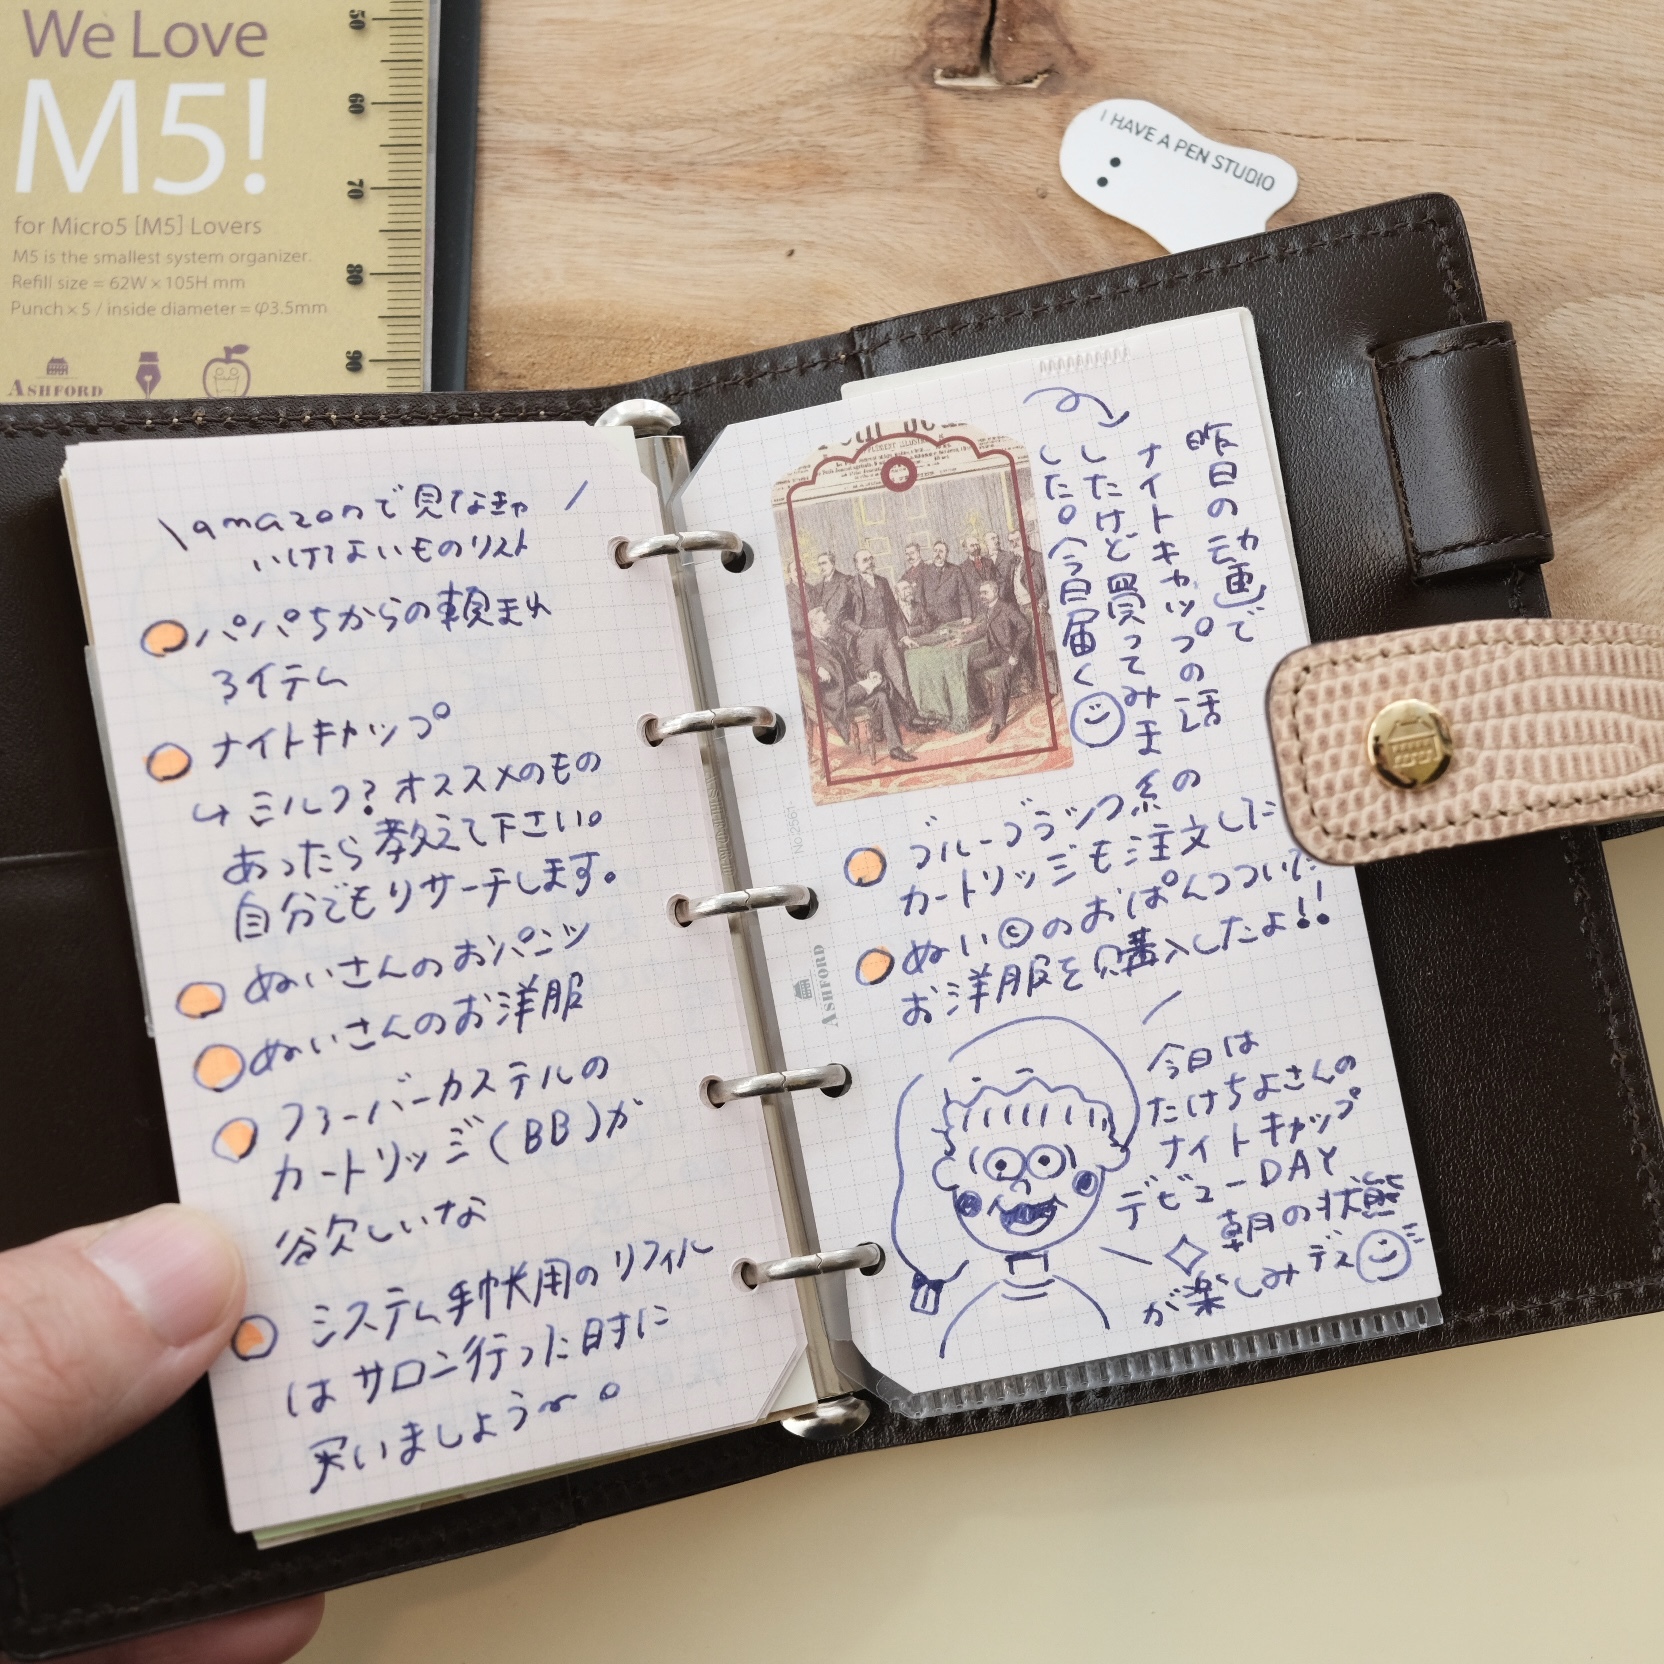 We Love
M5!
for Micro5 [M5] Lovers
M5 is the smallest system organizer.
Refill size = 62W × 105H mm
Punch × 5 / inside diameter = φ3.5mm
ASHFORD
50
60
70
80
90
I HAVE A PEN STUDIO
\amazonで見なきゃ /
いけないものリスト
パパちからの頼まれ
3イテム
ナイトキャップ
↳ミルク?オススメのもの
あったら教えて下さい。
自分でもリサーチします。
ぬいさんのおパンツ
ぬいさんのお洋服
ファーバーカステルの
カートリッジ(BB)が
欲しいな
システム手帳用のリフィル
はサロン行った時に
買いましょう〜。
昨日の動画で
ナイトキャップの話
したけど買ってみま
した。今日届く
No.2561
ASHFORD
ブルーブラック系の
カートリッジも注文した
ぬい©のおぱんつついに
お洋服を購入したよ!!
今日は
たけちよさんの
ナイトキャップ
デビューDAY
朝の状態
が楽しみデス